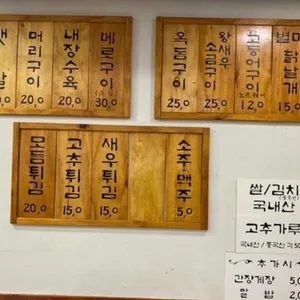 머리구이 20,0
내장수육 20,0
메로구이 30,0
옥돔구이 25,0
왕새우소금구이 25,0
고등어구이 노르웨이 12,0
닭날개 15,0
모듬튀김 20,0
고추튀김 15,0
새우튀김 15,0
소주맥주 5,0
쌀/김치
국내산
고추가루
추가시
간장게장 5,0
알밥 2,0